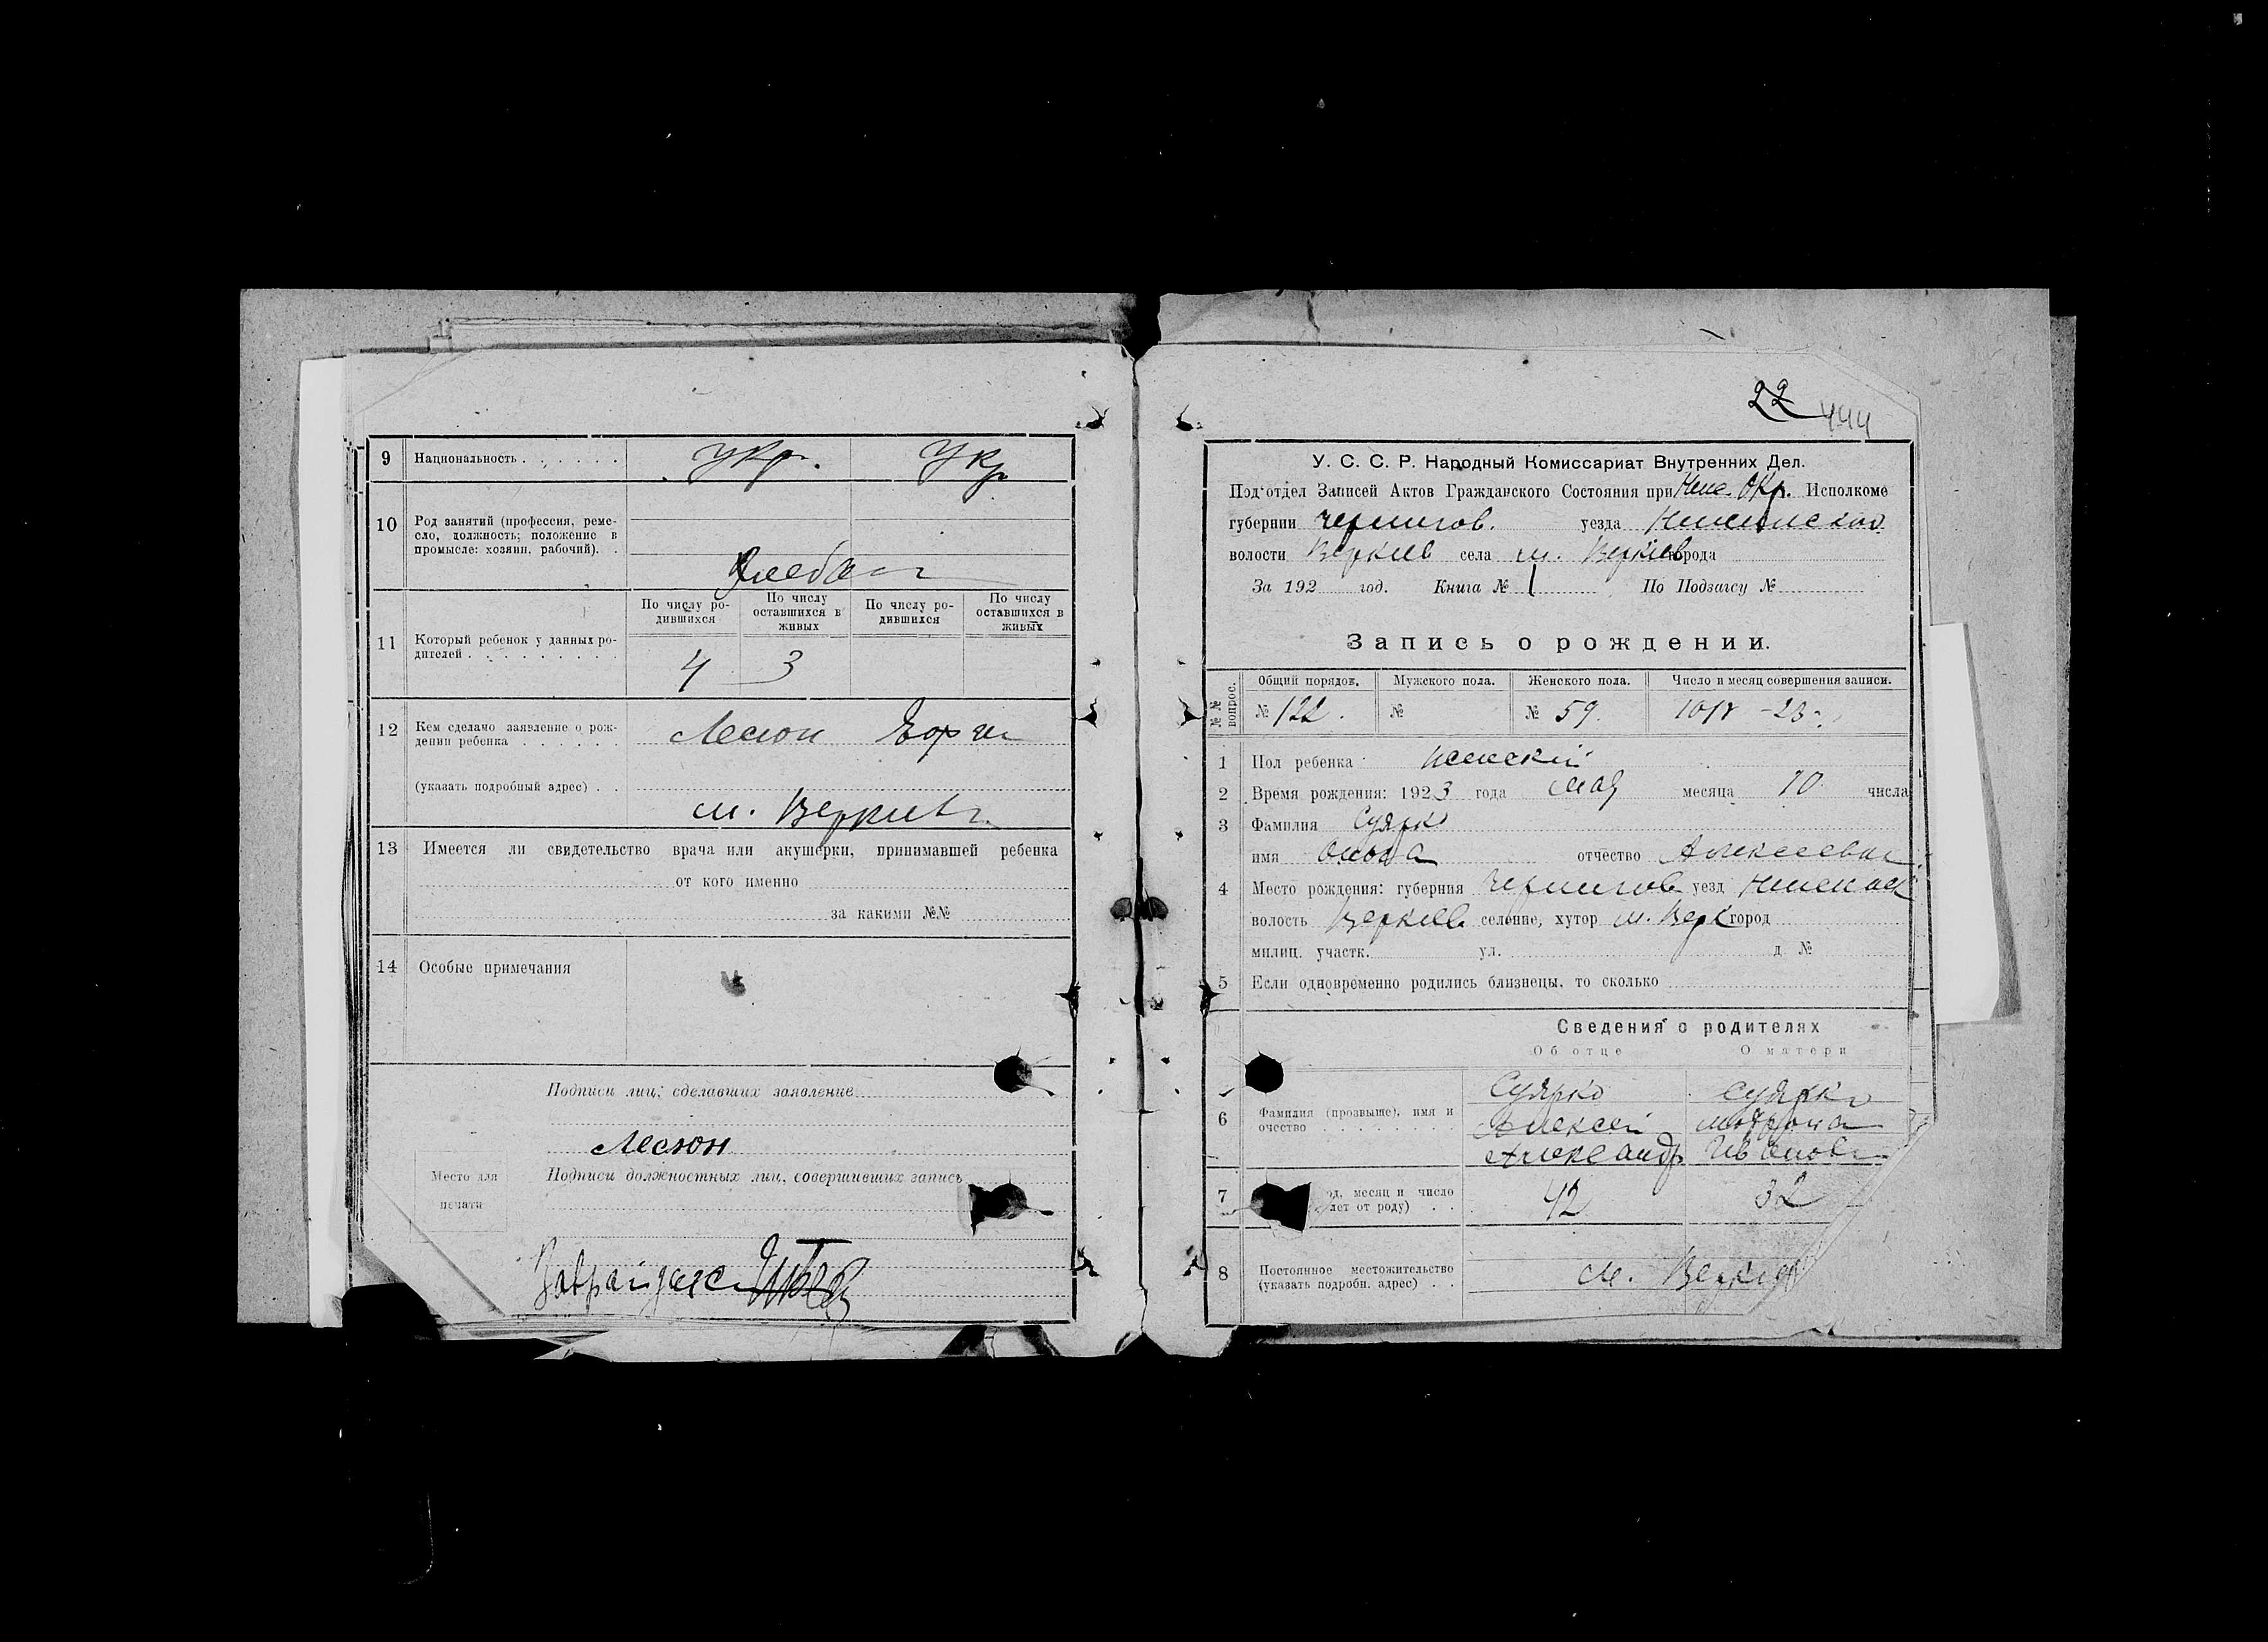 9 Национальность . . . . . . Укр. Укр
10 Род занятий (профессия, реме-
сло, должность; положение в
промысле: хозяин, рабочий). .
Хлебоп
По числу ро-
дившихся
По числу
оставшихся в
живых
По числу ро-
дившихся
По числу
оставшихся в
живых
11 Который ребенок у данных ро-
дителей . . . . . . . . . 4 3
12 Кем сделано заявление о рож-
дении ребенка . . . . . . Лесюн
(указать подробный адрес) . .
м. Веркиев
13 Имеется ли свидетельство врача или акушерки, принимавшей ребенка
от кого именно
за какими №№
14 Особые примечания
Подписи лиц, сделавших заявление
Лесюн
Место для
печати
Подписи должностных лиц, совершивших запись
22 444
У. С. С. Р. Народный Комиссариат Внутренних Дел.
Под'отдел Записей Актов Гражданского Состояния при Неж. Окр. Исполкоме
губернии Чернигов. уезда Нежинского
волости Веркиев села м. Веркиев города
За 192 год. Книга № 1 По Подзагсу №
Запись о рождении.
№ № вопрос.
Общий порядок. Мужского пола. Женского пола. Число и месяц совершения записи.
№ 122. № № 59. 10/V -23
1 Пол ребенка женский
2 Время рождения: 1923 года мая месяца 10 числа
3 Фамилия Суярко
имя отчество Алексеевна
4 Место рождения: губерния Чернигов уезд
волость Веркиев селение, хутор м. Верк город
милиц. участк. ул. д №
5 Если одновременно родились близнецы, то сколько
Сведения о родителях
Об отце О матери
6 Фамилия (прозвыше), имя и
очество . . . . . . . .
Суярко Суярко
Алексей Мотрона
Александр Ивановн
7 од, месяц и число
лет от роду) . . 42 32
8 Постоянное местожительство
(указать подробн. адрес) . . м. Веркиев